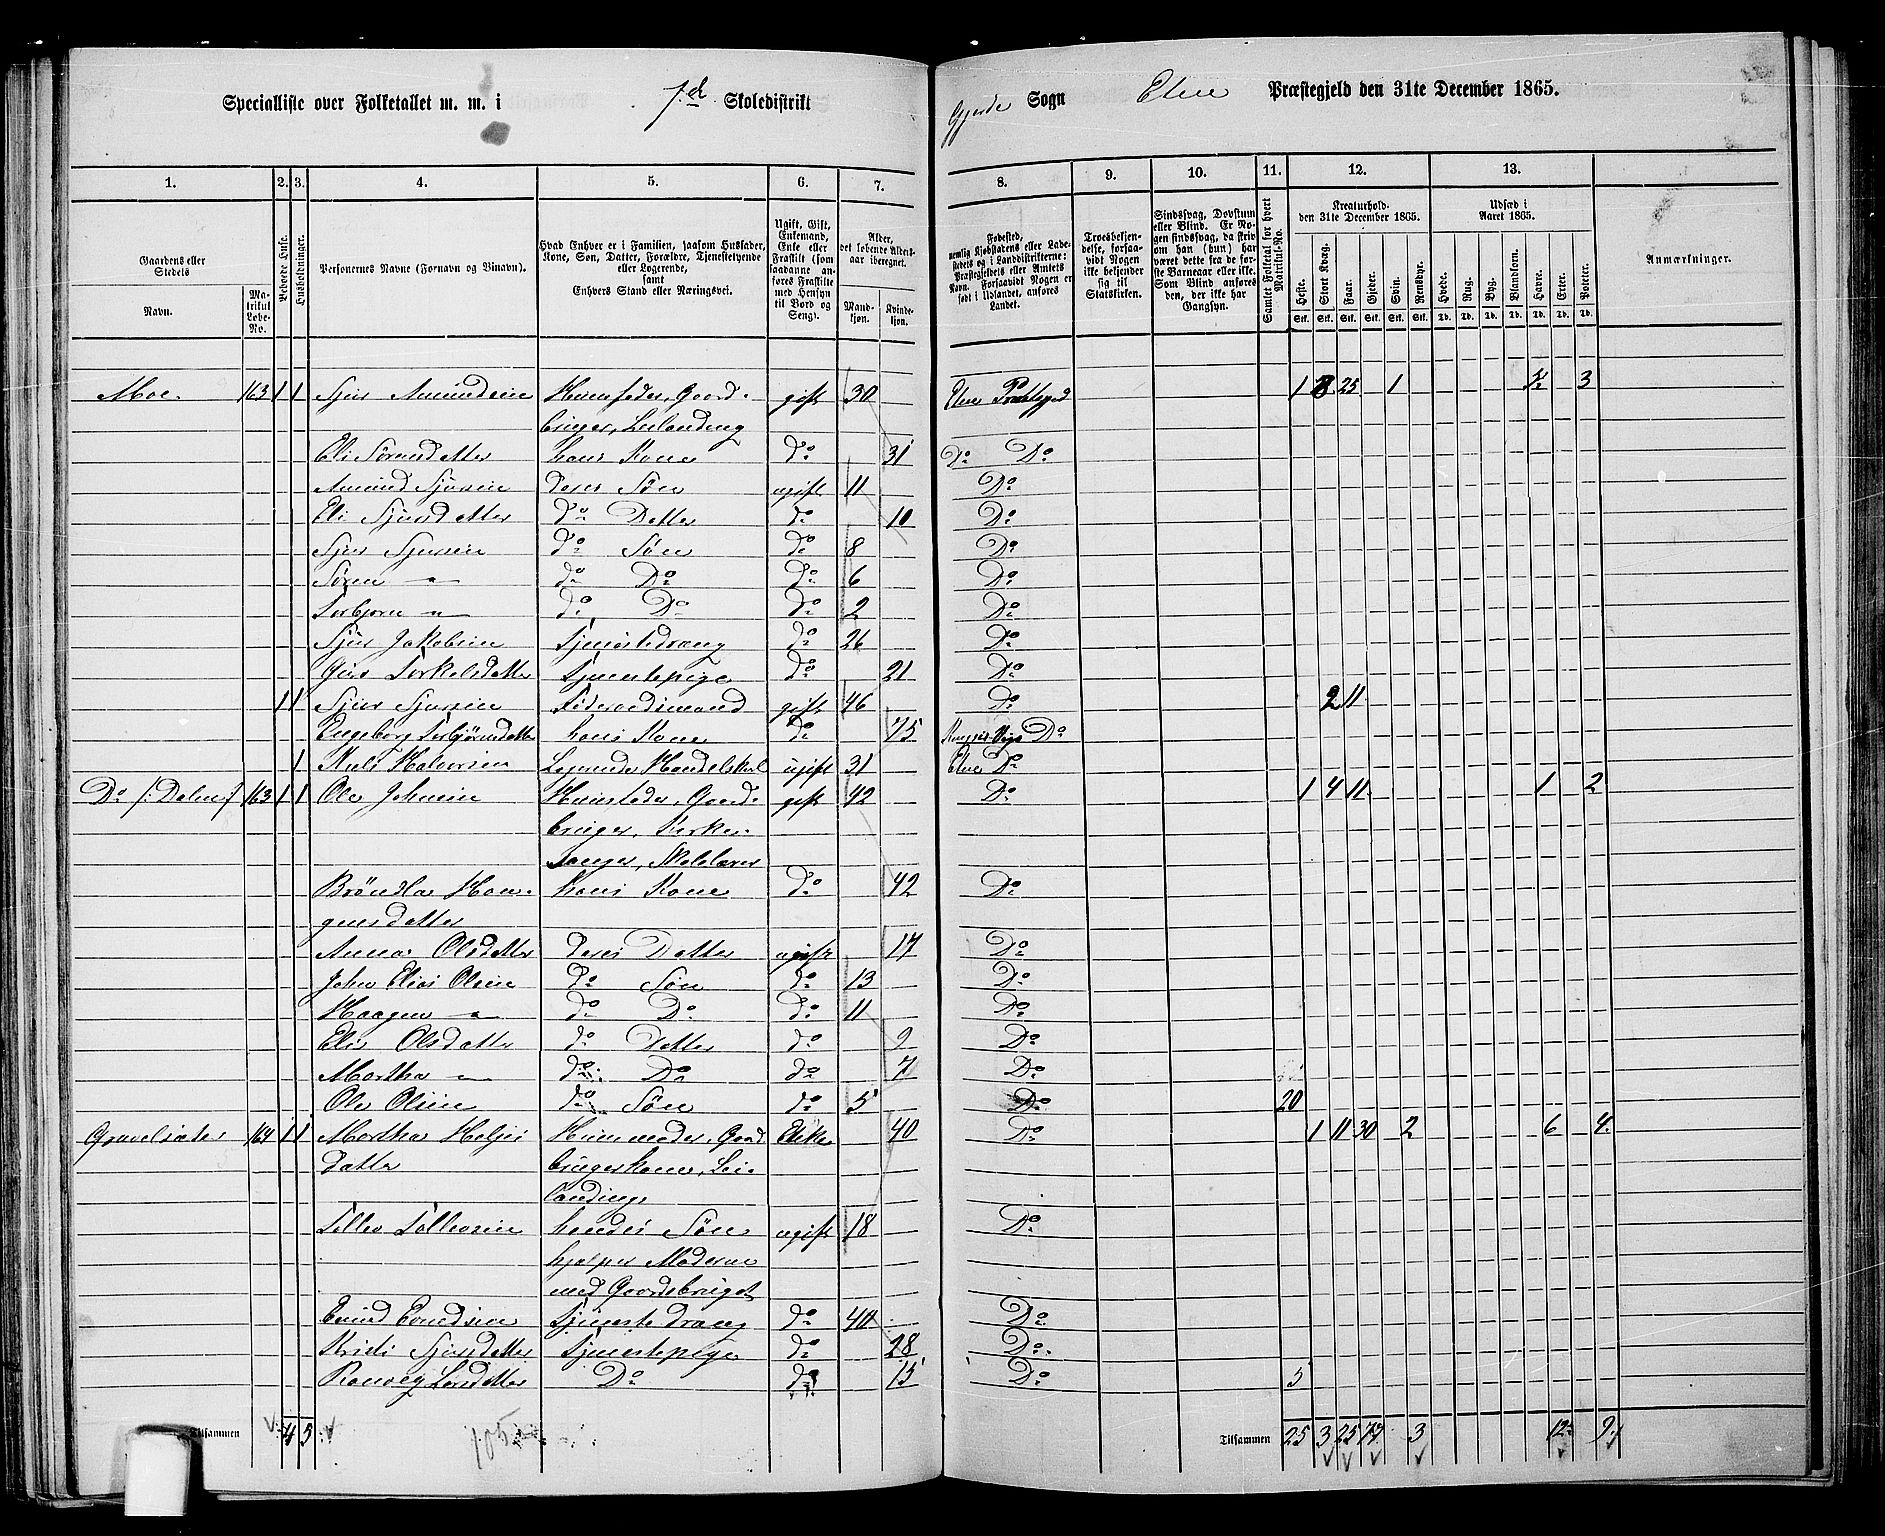 Specialliste over Folketallet m. m. i 7.d Skoledistrikt Gjerde Sogn Etne Præstegjeld den 31te December 1865.
1. 2. 3. 4. 5. 6. 7. 8. 9. 10. 11. 12. 13.
Gaardens eller Stedets
Navn. Matrikul Løbe-No.
Beboede Huse.
Husholdninger.
Personernes Navne (Fornavn og Tilnavn).
Hvad Enhver er i Familien, saasom Husfader, Kone, Søn, Datter, Forældre, Tjenestetyende eller Logerende, samt Enhvers Stand eller Næringsvei.
Ugift, Gift, Enkemand, Enke eller Fraskilt (som saadanne anføres Fraskilte med Hensyn til Bord og Seng).
Alder, det løbende Alders-aar iberegnet.
Mand-kjøn. Kvinde-kjøn.
Fødested, nemlig Kjøbstadens eller Ladestedets og i Landdistrikterne: Præstegjeldets eller Amtets Navn. Forsaavidt Nogen er født i Udlandet, anføres Landet.
Troesbekjendelse, forsaavidt Nogen ikke bekjender sig til Statskirken.
Sindssvag, Døvstum eller Blind. Er Nogen sindssvag, da skriv om han (hun) har været dette fra de første Barneaar eller ikke. Som Blind anføres den, der ikke har Gangsyn.
Samlet Folketal for hvert Matrikul-No.
Kreaturhold den 31te December 1865.
Heste. Stort Kvæg. Faar. Gjeder. Svin. Rensdyr.
Udsæd i Aaret 1865.
Hvede. Rug. Byg. Blandkorn. Havre. Erter. Poteter.
Anmærkninger.
Moe. 163 1 1 Sjur Amundsen Huusfader, Gaard- gift 30 Etne Præstegjed 1 8 25 1 5 3
bruger, Leilænding
Eli Sørensdatter hans Kone do 31 Do Do
Amund Sjursen deres Søn ugift 11 Do
Eli Sjursdatter do Datter do 10 Do
Sjur Sjursen do Søn do 8 Do
Søren — do Do do 6 Do
Torbjørn — do Do do 2 Do
Sjur Jakobsen Tjenestedreng do 26 Do
Guro Torkelsdatter Tjenestepige do 21 Do
1 1 Sjur Sjursen Føderaadsmand gift 46 Do 2 11
Engeborg Torbjørnsdatter hans Kone do 75 Do
1 Nels Halvorsen Logerende Handelskarl ugift 31 Etne Do
Do /: Dalen :/ 163 1 1 Ole Johnsen Huusfader, Gaard- gift 42 Do 1 4 11 1 2
bruger, Kirke-
sanger, Skolelærer
Brønla Haa- hans Kone do 42 Do
gensdatter
Anna Olsdatter deres Datter ugift 17 Do
John Elias Olsen do Søn do 13 Do
Haagen — do Do do 11 Do
Eli Olsdatter do Datter do 9 Do
Martha — do Do do 7 Do
Ole Olsen do Søn do 5 Do 20
Gravelsæter 164 1 1 Martha Heljes Huusmoder, Gaard Enke 40 Do 1 11 30 2 6 4
datter brugerkone, Lei-
landinge
Tollev Tollevsen hendes Søn ugift 18 Do
hjælper Moderen
med Gaardsbruget
Tjenestedreng do 40 Do
Kristi Sjursdatter Tjenestepige do 28 Do
Ranveig Larsdatter Do do 15 Do 5
Tilsammen 4 5 105 Tilsammen 25 3 25 77 3 12 9